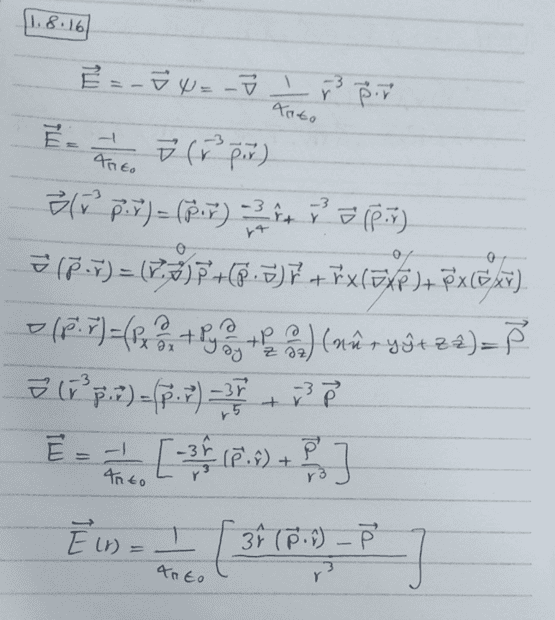 1.8.16
$\vec{E} = -\vec{\nabla} \psi = -\vec{\nabla} \frac{1}{4\pi\epsilon_0} r^{-3} \vec{p}\cdot\vec{r}$
$\vec{E} = \frac{-1}{4\pi\epsilon_0} \vec{\nabla} (r^{-3} \vec{p}\cdot\vec{r})$
$\vec{\nabla}(r^{-3} \vec{p}\cdot\vec{r}) = (\vec{p}\cdot\vec{r}) \frac{-3}{r^4} \hat{r} + r^{-3} \vec{\nabla}(\vec{p}\cdot\vec{r})$
$\vec{\nabla}(\vec{p}\cdot\vec{r}) = \cancel{(\vec{r}\cdot\vec{\nabla})\vec{p}}^{0} + (\vec{p}\cdot\vec{\nabla})\vec{r} + \vec{r}\times\cancel{(\vec{\nabla}\times\vec{p})}^{0} + \vec{p}\times\cancel{(\vec{\nabla}\times\vec{r})}^{0}$
$\nabla(\vec{p}\cdot\vec{r}) = (p_x \frac{\partial}{\partial x} + p_y \frac{\partial}{\partial y} + p_z \frac{\partial}{\partial z})(x\hat{x} + y\hat{y} + z\hat{z}) = \vec{p}$
$\vec{\nabla}(r^{-3} \vec{p}\cdot\vec{r}) = (\vec{p}\cdot\vec{r}) \frac{-3\vec{r}}{r^5} + r^{-3} \vec{p}$
$\vec{E} = \frac{-1}{4\pi\epsilon_0} \left[ \frac{-3\hat{r}}{r^3} (\vec{p}\cdot\hat{r}) + \frac{\vec{p}}{r^3} \right]$
$\vec{E}(r) = \frac{1}{4\pi\epsilon_0} \left[ \frac{3\hat{r}(\vec{p}\cdot\hat{r}) - \vec{p}}{r^3} \right]$